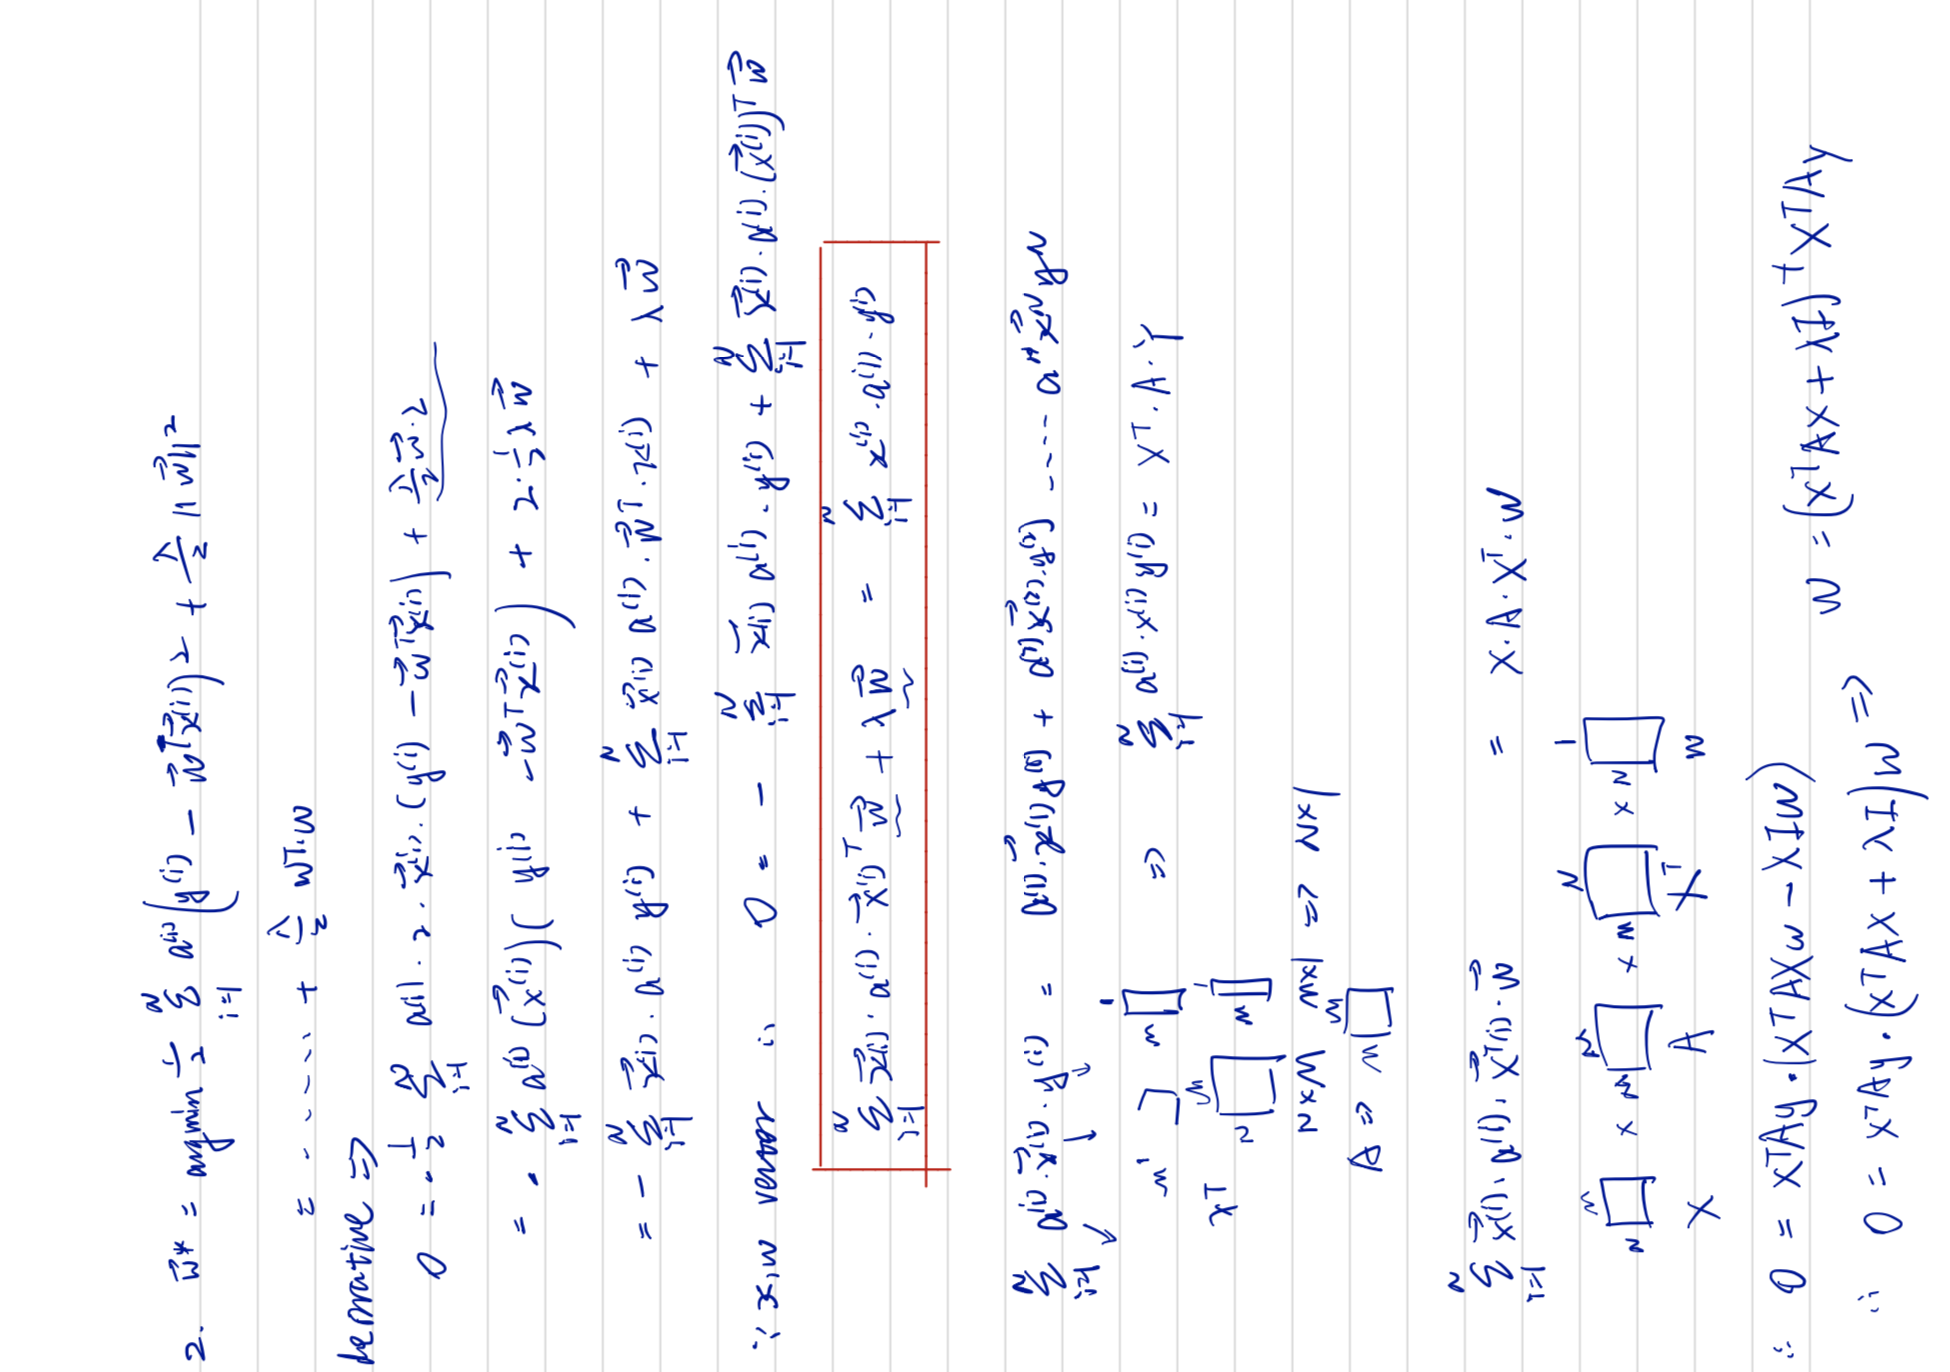 2. w⃗* = argmin 1/2 Σ_{i=1}^{N} a^{(i)} (y^{(i)} − w⃗^T x⃗^{(i)})^2 + λ/2 ||w⃗||^2
= ...... + λ/2 w^T·w
derivative ⇒
0 = · 1/2 Σ_{i=1}^{N} a^{(i)} · 2 · x⃗^{(i)} · (y^{(i)} − w⃗^T x⃗^{(i)}) + λ/2 w⃗·2
= · Σ_{i=1}^{N} a^{(i)} (x⃗^{(i)}) ( y^{(i)} − w⃗^T x⃗^{(i)} ) + 2·1/2 λ w⃗
= − Σ_{i=1}^{N} x⃗^{(i)} · a^{(i)} y^{(i)} + Σ_{i=1}^{N} x⃗^{(i)} a^{(i)} · w⃗^T · x^{(i)} + λ w⃗
∵ x, w vector ∴ 0 = − Σ_{i=1}^{N} x⃗^{(i)} a^{(i)} · y^{(i)} + Σ_{i=1}^{N} x⃗^{(i)} · a^{(i)} · (x⃗^{(i)})^T w⃗
Σ_{i=1}^{N} x⃗^{(i)} · a^{(i)} · x⃗^{(i)T} w⃗ + λ w⃗ = Σ_{i=1}^{N} x^{(i)} · a^{(i)} · y^{(i)}
Σ_{i=1}^{N} a^{(i)} · x⃗^{(i)} · y^{(i)} = a^{(1)} · x⃗^{(1)} y^{(1)} + a^{(2)} x⃗^{(2)} · y^{(2)} ---- a^N x⃗^N y^N
⇒ Σ_{i=1}^{N} a^{(i)} · x^{(i)} y^{(i)} = X^T · A · Y
X^T
N×N N×1 ⇒ N×1
A ⇒ N N
Σ_{i=1}^{N} x⃗^{(i)} · a^{(i)} · x⃗^{T(i)} · w⃗ = X · A · X^T · W
N × N × M × N 1
X A X^T W
∴ 0 = X^T A y · (X^T A X w − λ I w)
∴ 0 = X^T A y · (X^T A X + λ I) W ⇒ W = (X^T A X + λ I)^† X^T A y